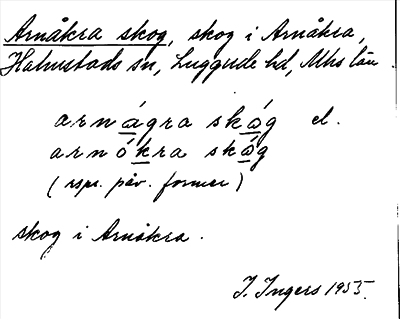 Arnåkra skog, skog i Arnåkra,
Halmstads sn, Luggude hd, Mhs län
arnágra skåg el.
arnókra skåg
(rspr. påv. former)
skog i Arnåkra.
I. Ingers 1955.